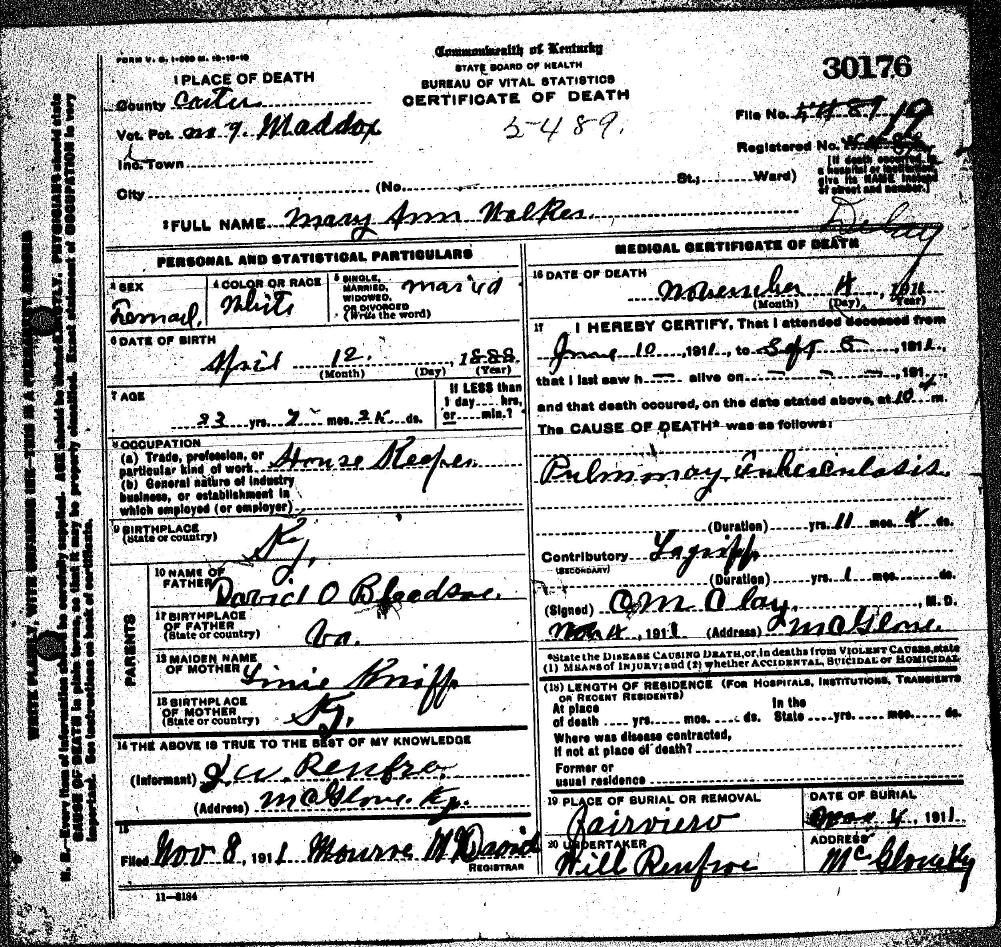 FORM V. S. 1-
Commonwealth of Kentucky
STATE BOARD OF HEALTH
BUREAU OF VITAL STATISTICS
CERTIFICATE OF DEATH
30176
5489.
1 PLACE OF DEATH
County Carter
Vot. Pct. Maddox
Inc. Town
City (No. St.; Ward)
File No. 19
Registered No.
[If death occurred in a hospital or institution, give its NAME instead of street and number.]
2 FULL NAME Mary Ann Walker
Delay
PERSONAL AND STATISTICAL PARTICULARS
3 SEX
Femail.
4 COLOR OR RACE
White
5 SINGLE, MARRIED, WIDOWED, OR DIVORCED (Write the word)
maried
6 DATE OF BIRTH
April 12. 1888
(Month) (Day) (Year)
7 AGE
yrs. mos. ds.
If LESS than 1 day hrs, or min.?
8 OCCUPATION
(a) Trade, profession, or particular kind of work House Keeper
(b) General nature of industry business, or establishment in which employed (or employer)
9 BIRTHPLACE
(State or country)
Ky.
PARENTS
10 NAME OF FATHER David O Bledsoe.
11 BIRTHPLACE OF FATHER
(State or country)
Va.
12 MAIDEN NAME OF MOTHER Linie Knipp
13 BIRTHPLACE OF MOTHER
(State or country)
Ky.
14 THE ABOVE IS TRUE TO THE BEST OF MY KNOWLEDGE
(Informant) J. W. Renfro.
(Address) McGlone. Ky.
15
Filed Nov 8, 1911 Monroe McDavid
REGISTRAR
11-3184
MEDICAL CERTIFICATE OF DEATH
16 DATE OF DEATH
November 4, 1911
(Month) (Day) (Year)
17 I HEREBY CERTIFY, That I attended deceased from
June 10, 1911, to Sept 5, 1911,
that I last saw h alive on 191
and that death occured, on the date stated above, at 10 m.
The CAUSE OF DEATH* was as follows:
Pulmmay Tuberculosis
(Duration) yrs. 11 mos. 4 ds.
Contributory Lagripp
(SECONDARY)
(Duration) yrs. 1 mos. ds.
(Signed) O M Clay., M. D.
Nov 4, 1911 (Address) McGlone.
*State the DISEASE CAUSING DEATH, or, in deaths from VIOLENT CAUSES, state
(1) MEANS OF INJURY; and (2) whether ACCIDENTAL, SUICIDAL or HOMICIDAL
(18) LENGTH OF RESIDENCE (FOR HOSPITALS, INSTITUTIONS, TRANSIENTS OR RECENT RESIDENTS)
At place of death yrs. mos. ds. In the State yrs. mos. ds.
Where was disease contracted,
if not at place of death?
Former or
usual residence
19 PLACE OF BURIAL OR REMOVAL
Fairview
DATE OF BURIAL
4, 1911
20 UNDERTAKER
Will Renfroe
ADDRESS
McGlone Ky
WRITE PLAINLY, WITH UNFADING INK—THIS IS A PERMANENT RECORD
N. B.—Every item of information should be carefully supplied. AGE should be stated EXACTLY. PHYSICIANS should state
CAUSE OF DEATH in plain terms, so that it may be properly classified. Exact statement of OCCUPATION is very
important. See instructions on back of certificate.